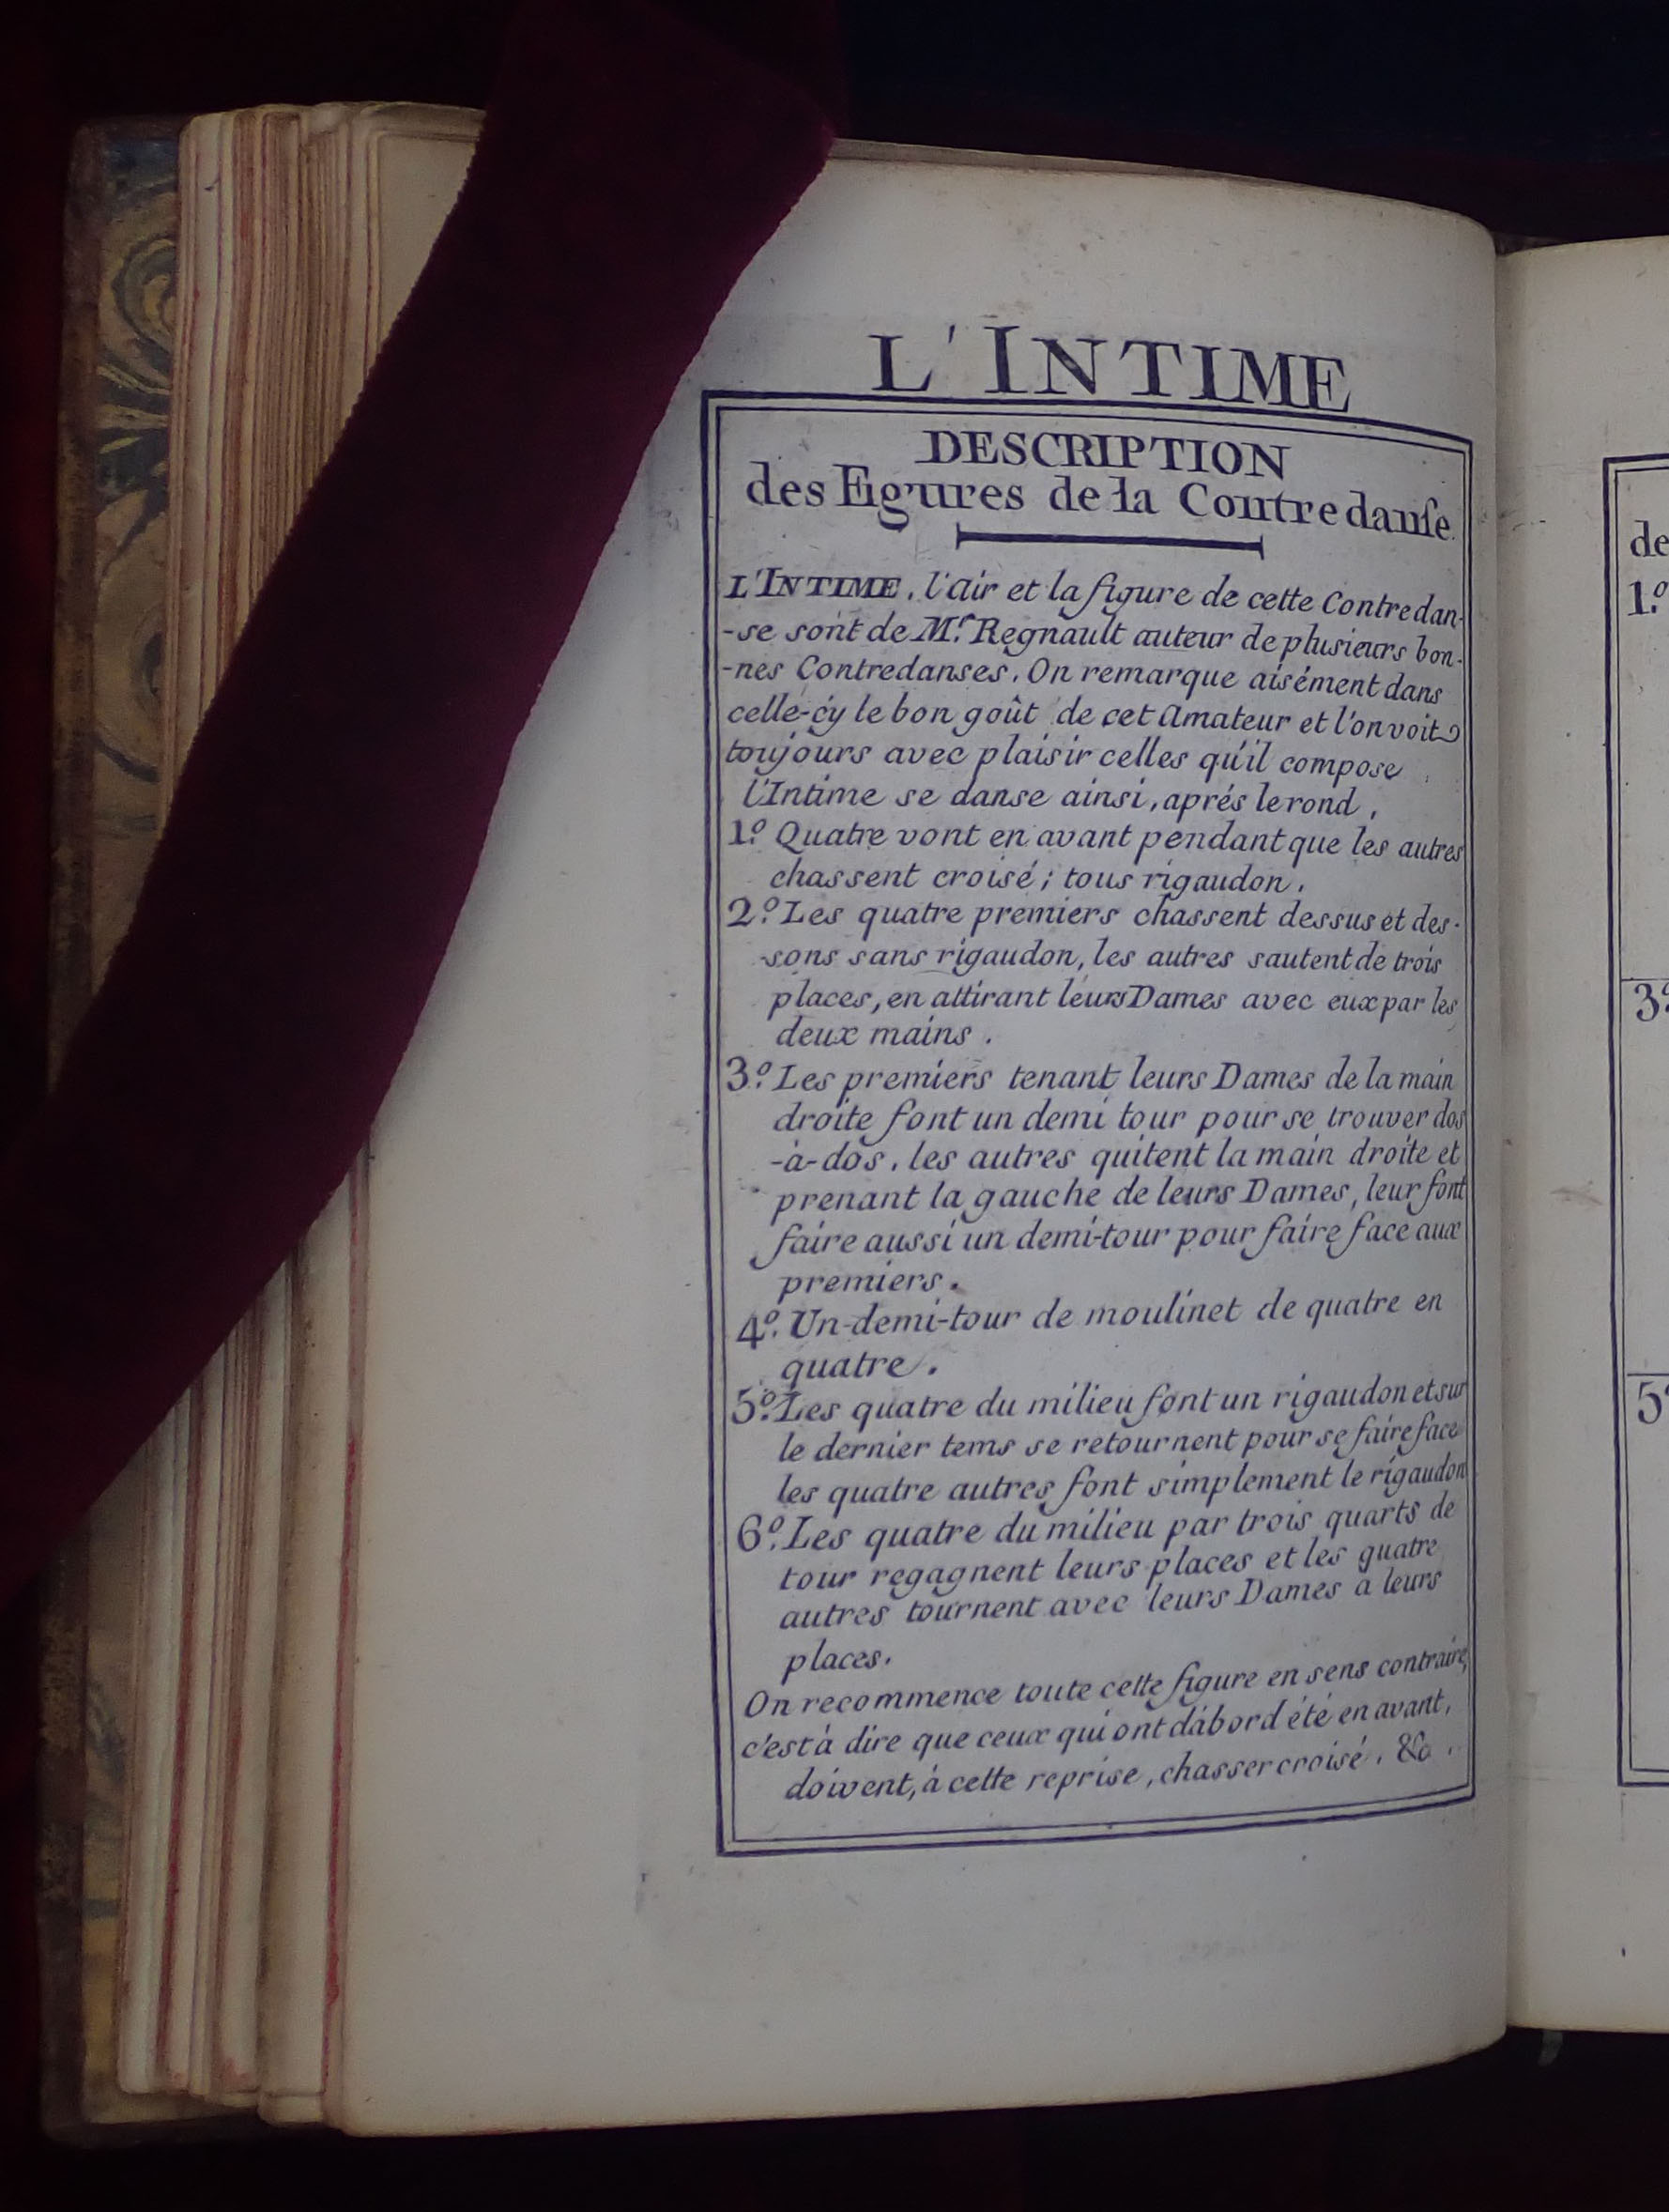 L'INTIME
DESCRIPTION
des Figures de la Contredanſe.
L'INTIME, l'air et la figure de cette Contredan-
-se sont de M.r Regnault auteur de plusieurs bon-
-nes Contredanses. On remarque aisément dans
celle-cy le bon goût de cet Amateur et l'on voit
toujours avec plaisir celles qu'il compose
l'Intime se danse ainsi, aprés le rond,
1.o Quatre vont en avant pendant que les autres
chassent croisé; tous rigaudon.
2.o Les quatre premiers chassent dessus et des-
-sons sans rigaudon, les autres sautent de trois
places, en attirant leurs Dames avec eux par les
deux mains.
3.o Les premiers tenant leurs Dames de la main
droite font un demi tour pour se trouver dos
-à-dos, les autres quitent la main droite et
prenant la gauche de leurs Dames, leur font
faire aussi un demi-tour pour faire face aux
premiers.
4.o Un-demi-tour de moulinet de quatre en
quatre.
5.o Les quatre du milieu font un rigaudon et sur
le dernier tems se retournent pour se faire face
les quatre autres font simplement le rigaudon
6.o Les quatre du milieu par trois quarts de
tour regagnent leurs places et les quatre
autres tournent avec leurs Dames a leurs
places.
On recommence toute cette figure en sens contraire,
c'est à dire que ceux qui ont d'abord été en avant,
doivent, à cette reprise, chasser croisé, &c.
de
1.o
3.o
5.o